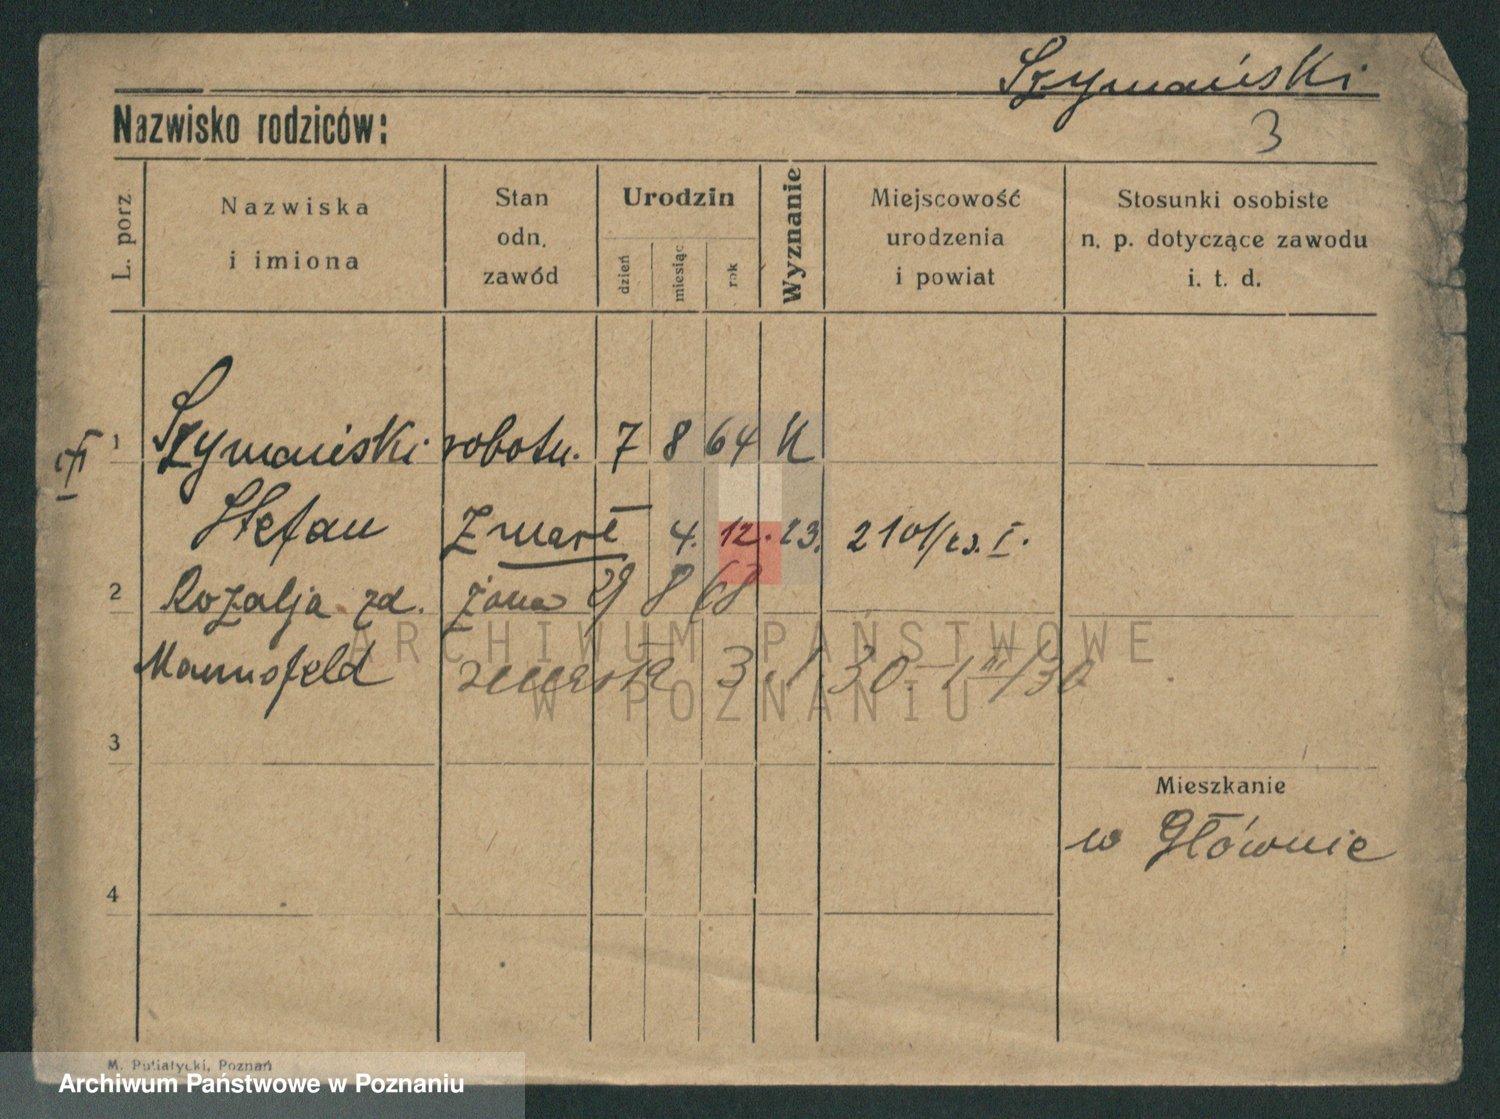 Szymański
Nazwisko rodziców:
3
L. porz.
Nazwiska
i imiona
Stan
odn.
zawód
Urodzin
dzień
miesiąc
rok
Wyznanie
Miejscowość
urodzenia
i powiat
Stosunki osobiste
n. p. dotyczące zawodu
i. t. d.
1 Szymański robotn. 7 8 64 K
Stefan zmarł 4. 12. 23. 2101/23. I.
2 Rozalja zd. żona 29 8 68
Mannsfeld zmarła 3. 1 30
3
Mieszkanie
w Głównie
4
M. Putiatycki, Poznań
ARCHIWUM PAŃSTWOWE
W POZNANIU
Archiwum Państwowe w Poznaniu